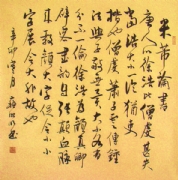 米芾論書
唐人以徐浩比僧虔甚失
當浩大小一倫猶吏
楷也僧虔蕭子雲傳鍾
法與子敬無異大小各有
分不一倫徐浩為顏真卿
辟客書韻自張顛血脈
來教顏大字促令小小
字展令大非古也
辛卯